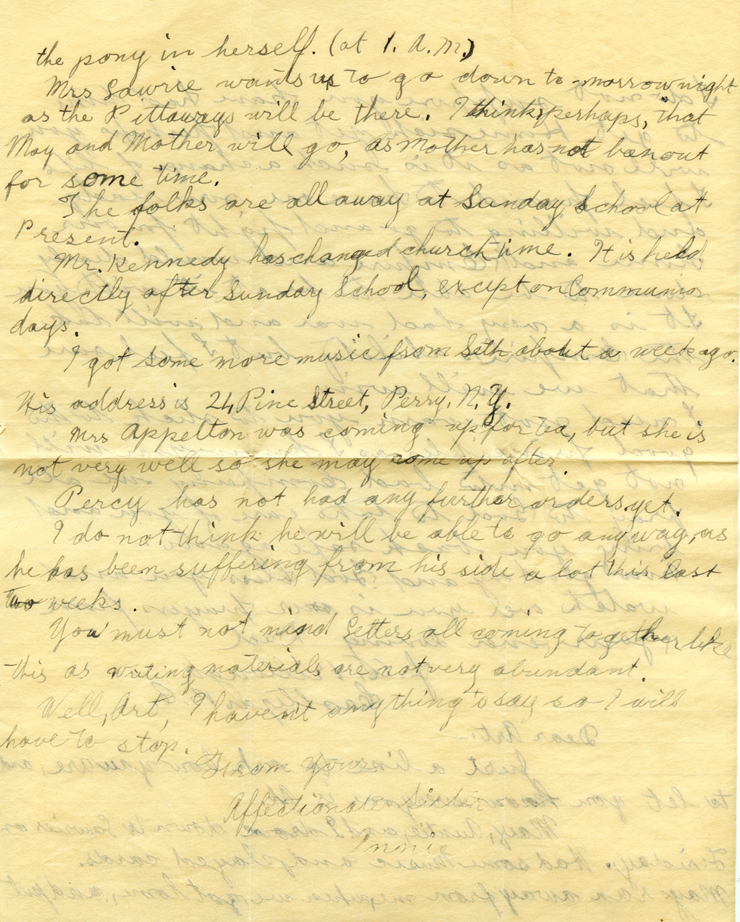 the pony in herself. (at 1. A.M.)
Mrs Sawrie wants us to go down to-morrow night
as the Pittaways will be there. I think, perhaps, that
May and Mother will go, as Mother has not ben out
for some time.
The folks are all away at Sunday School at
Present.
Mr. Kennedy has changed church time. It is held
directly after Sunday School, except on Communion
days.
I got some more music from Seth about a week ago.
His address is 24 Pine Street, Perry, N.Y.
Mrs Appelton was coming up for tea, but she is
not very well so she may come up after.
Percy has not had any further orders yet.
I do not think he will be able to go anyway, as
he has been suffering from his side a lot this last
two weeks.
You must not mind letters all coming together like
this as writing materials are not very abundant.
Well, Art, I havent anything to say so I will
have to stop.
From your
Affectionate Sister
Annie